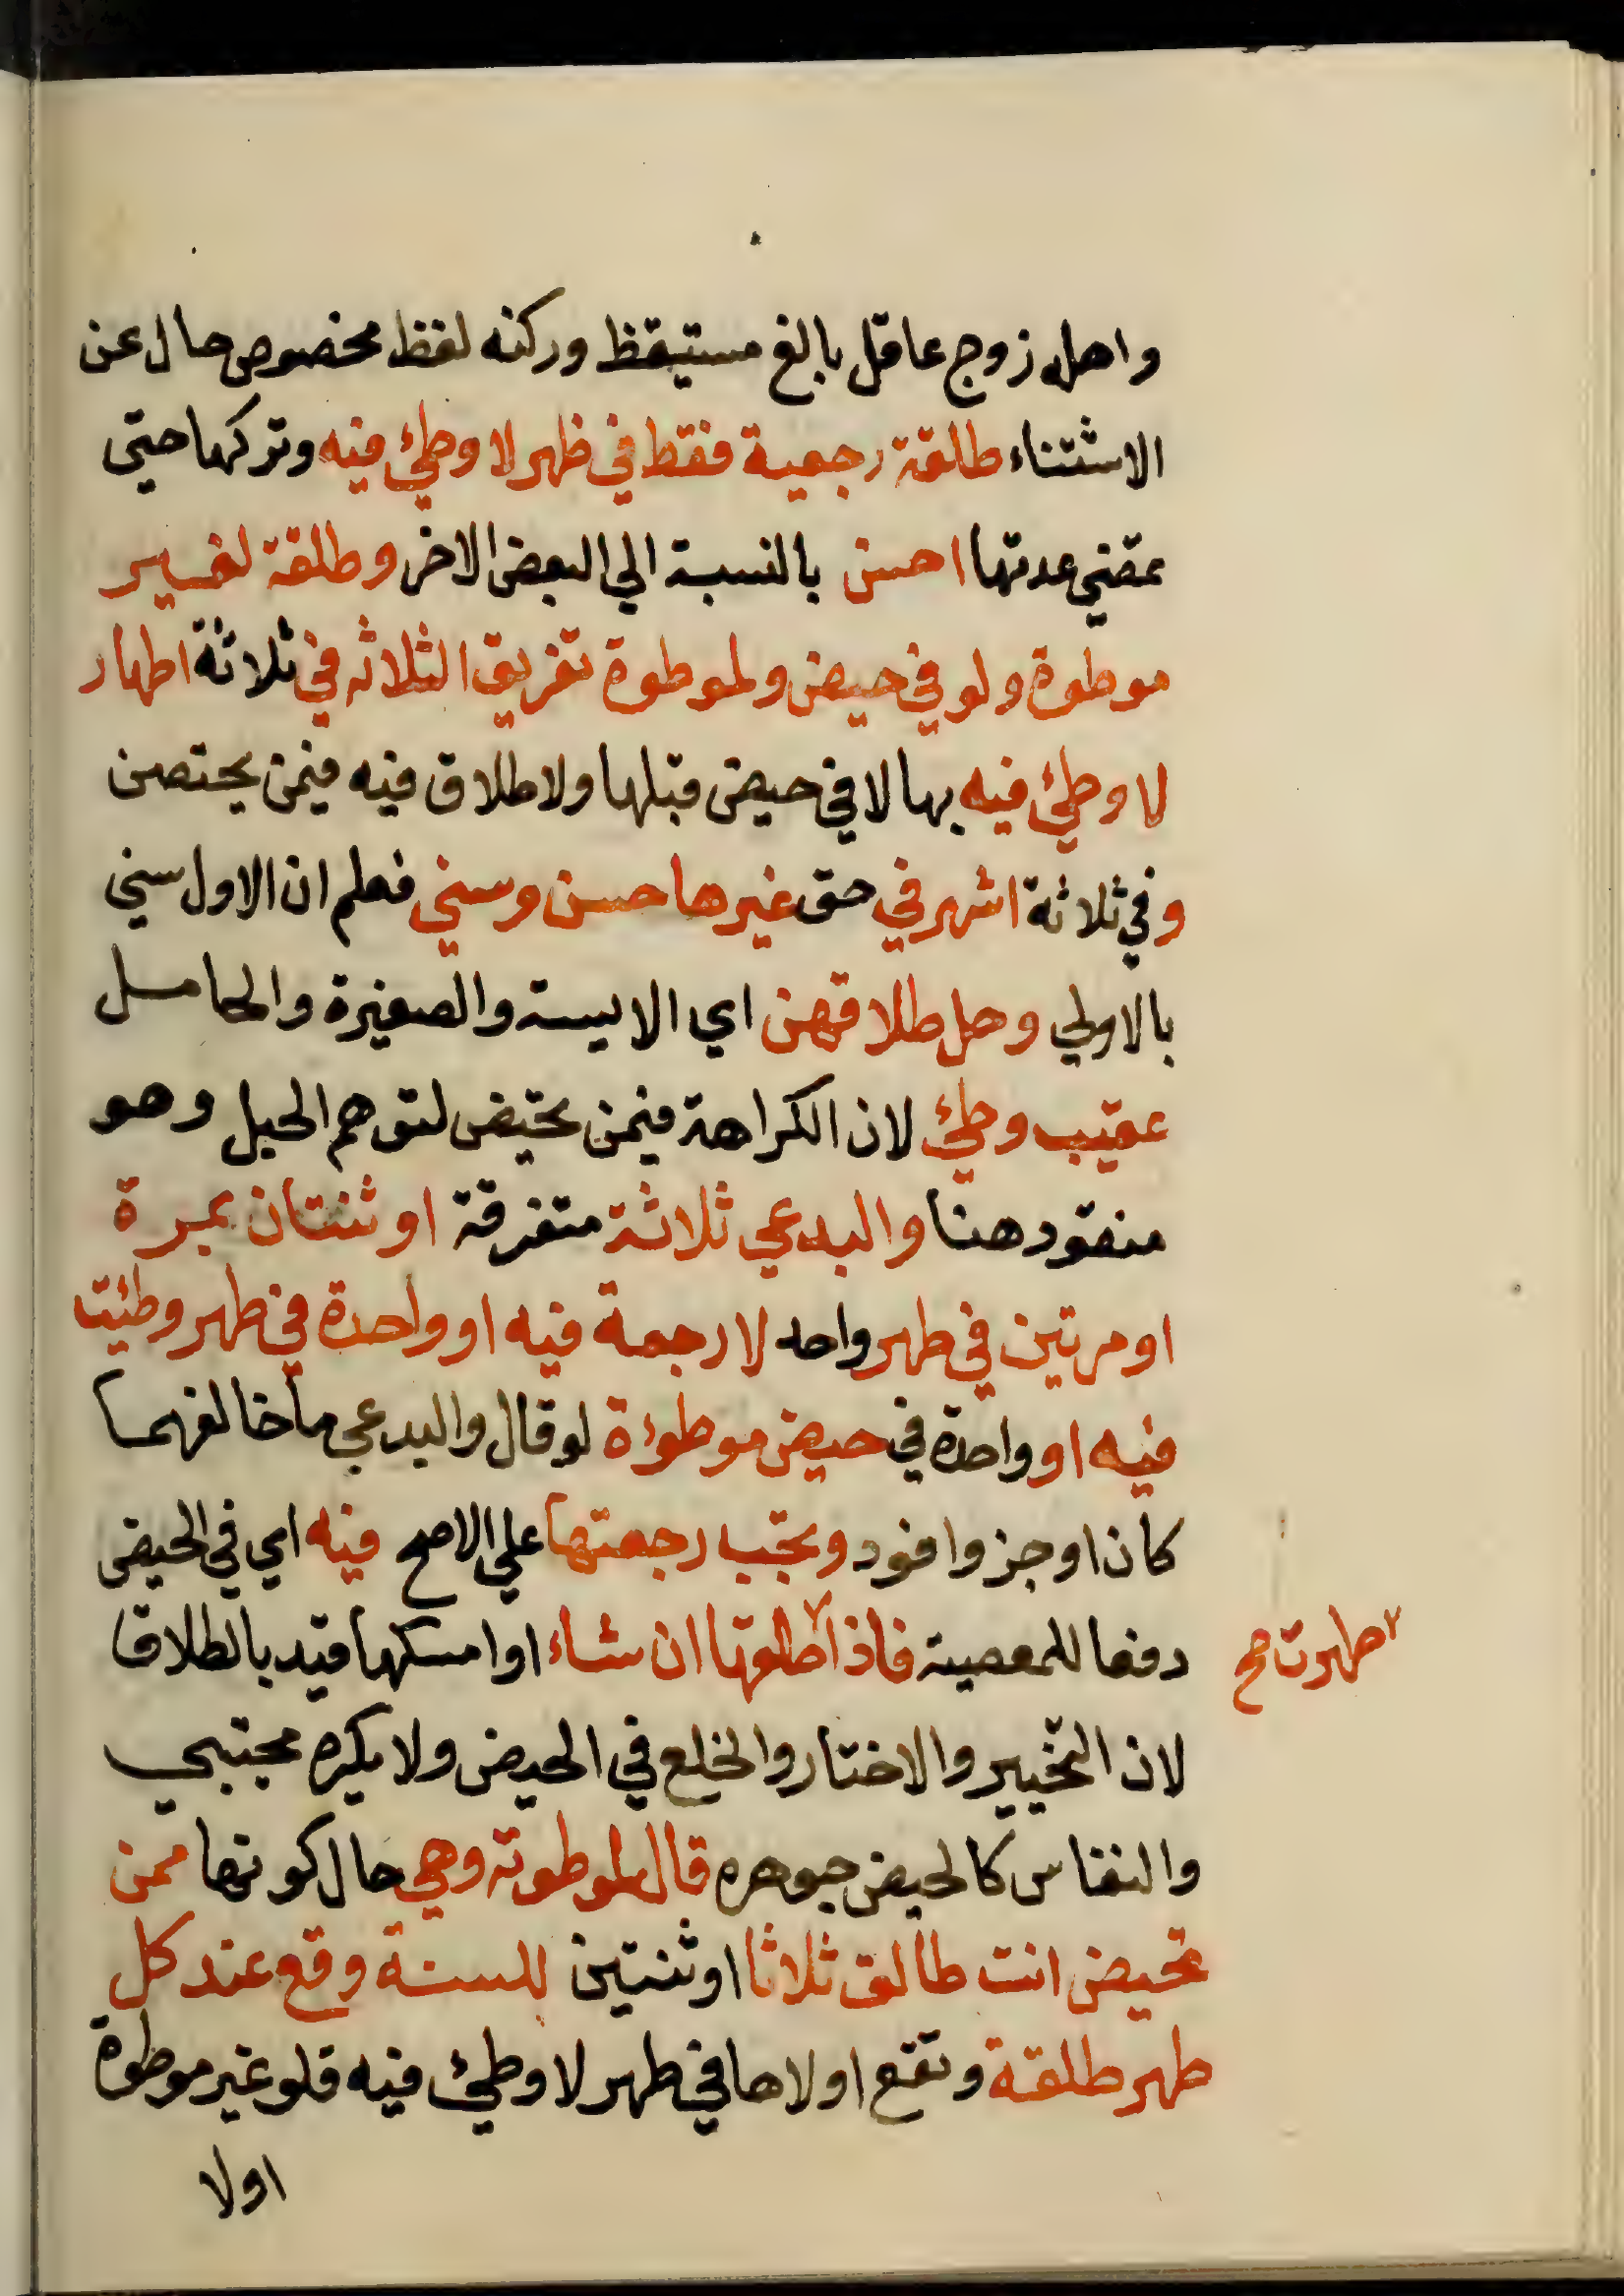 واهله زوج عاقل بالغ مستيقظ وركنه لفظ مخصوص خال عن
الاستثناء طلقة رجعية فقط في ظهر لا وطئ فيه وتركها حتي
تمضي عدتها احسن بالنسبة الي البعض الاخر وطلقة لغير
موطوة ولو في حيض ولموطوة تفريق الثلاثه في ثلاثة اطهار
لا وطئ فيه بها لا في حيض قبلها ولا طلاق فيه فيمن يحتصن
وفي ثلاثة اشهر في حق غيرها حسن وسني فعلم ان الاول سني
بالاولي وحل طلاقهن اي الايسة والصغيرة والحامل
عقيب وطئ لان الكراهة فيمن تحيض لتوهم الحبل وهو
مفقود هنا والبدعي ثلاثة متفرقة او ثنتان بمرة
او مرتين في طهر واحد لا رجعة فيه او واحدة في طهر وطئت
فيه او واحدة في حيض موطوءة لو قال والبدعي ما خالفهما
كان اوجز وافود وتجب رجعتها علي الاصح فيه اي في الحيض
دفعا للمعصية فاذا طلقها ان شاء او امسكها قيد بالطلاق
طهرت صح
لان التخيير والاختار والخلع في الحيض ولا يكره مجتبي
والنفاس كالحيض جوهره قال لموطوته وهي حال كونها ممن
تحيض انت طالق ثلاثا او ثنتين للسنة وقع عند كل
طهر طلقة وتقع اولاها في طهر لا وطئ فيه فلو غير موطوة
اولا